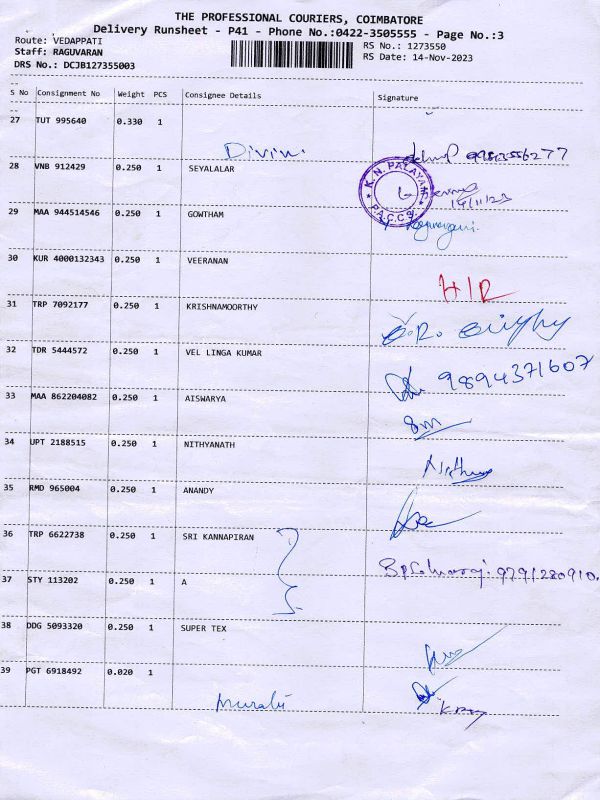 THE PROFESSIONAL COURIERS, COIMBATORE
Delivery Runsheet - P41 - Phone No.:0422-3505555 - Page No.:3
Route: VEDAPPATI
Staff: RAGUVARAN
DRS No.: DCJB127355003
RS No.: 1273550
RS Date: 14-Nov-2023
S No Consignment No Weight PCS Consignee Details Signature
27 TUT 995640 0.330 1
Divin.
28 VNB 912429 0.250 1 SEYALALAR
K.N. PALAYAM
P.A.C.C.S.
14/11/23
29 MAA 944514546 0.250 1 GOWTHAM
30 KUR 4000132343 0.250 1 VEERANAN
H/R
31 TRP 7092177 0.250 1 KRISHNAMOORTHY
32 TDR 5444572 0.250 1 VEL LINGA KUMAR
9894371607
33 MAA 862204082 0.250 1 AISWARYA
Sm
34 UPT 2188515 0.250 1 NITHYANATH
35 RMD 965004 0.250 1 ANANDY
36 TRP 6622738 0.250 1 SRI KANNAPIRAN
9791280910.
37 STY 113202 0.250 1 A
38 DDG 5093320 0.250 1 SUPER TEX
39 PGT 6918492 0.020 1
Murali